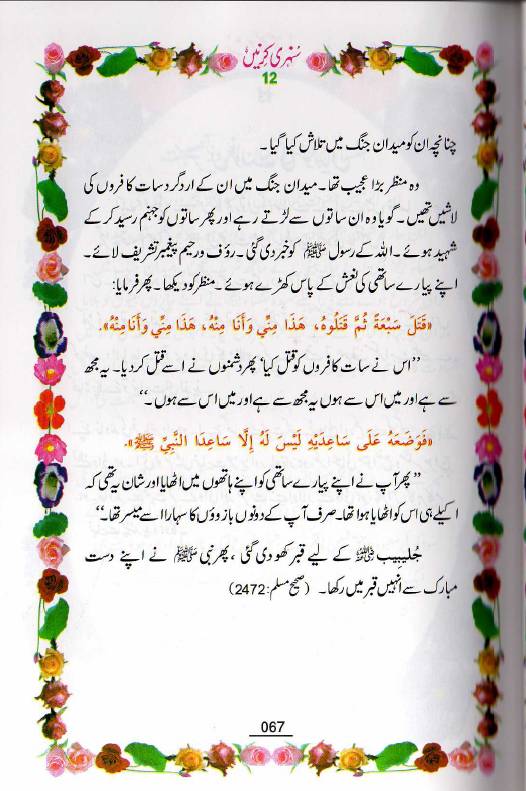 سنہری کرنیں
12
چنانچہ ان کو میدان جنگ میں تلاش کیا گیا۔
وہ منظر بڑا عجیب تھا۔ میدان جنگ میں ان کے ارد گرد سات کافروں کی
لاشیں تھیں۔ گویا وہ ان ساتوں سے لڑتے رہے اور پھر ساتوں کو جہنم رسید کر کے
شہید ہوئے۔ اللہ کے رسول ﷺ کو خبر دی گئی۔ رؤف و رحیم پیغمبر تشریف لائے۔
اپنے پیارے ساتھی کی نعش کے پاس کھڑے ہوئے۔ منظر کو دیکھا۔ پھر فرمایا:
«قَتَلَ سَبْعَةً ثُمَّ قَتَلُوهُ، هَذَا مِنِّي وَأَنَا مِنْهُ، هَذَا مِنِّي وَأَنَا مِنْهُ».
’’اس نے سات کافروں کو قتل کیا‘ پھر دشمنوں نے اسے قتل کر دیا۔ یہ مجھ
سے ہے اور میں اس سے ہوں یہ مجھ سے ہے اور میں اس سے ہوں۔‘‘
«فَوَضَعَهُ عَلَى سَاعِدَيْهِ لَيْسَ لَهُ إِلَّا سَاعِدَا النَّبِيِّ ﷺ».
’’پھر آپ نے اپنے پیارے ساتھی کو اپنے ہاتھوں میں اٹھایا اور شان یہ تھی کہ
اکیلے ہی اس کو اٹھایا ہوا تھا۔ صرف آپ کے دونوں بازوؤں کا سہارا اسے میسر تھا۔‘‘
جُلیبِیب ؓ کے لیے قبر کھودی گئی، پھر نبی ﷺ نے اپنے دست
مبارک سے انہیں قبر میں رکھا۔ (صحیح مسلم: 2472)
067